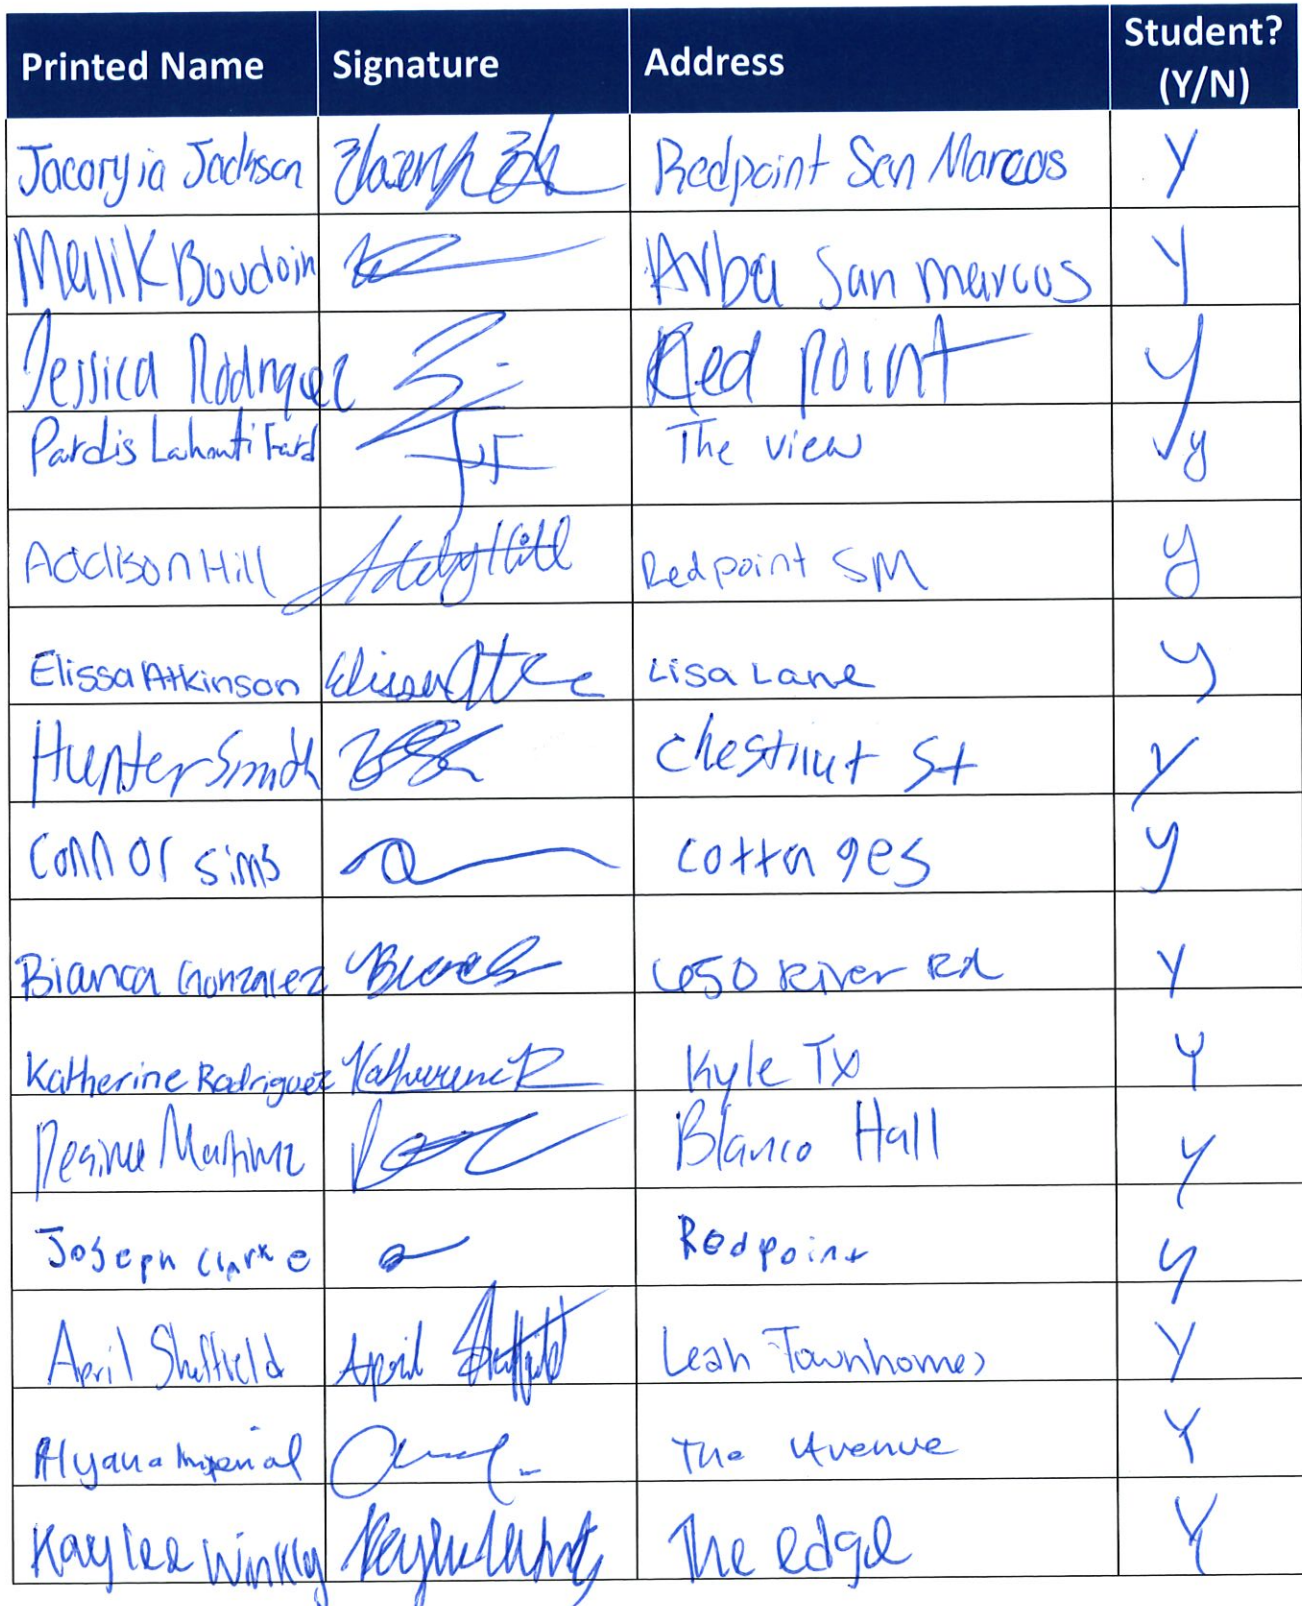 Printed Name Signature Address Student? (Y/N)
Jacoryia Jackson Redpoint San Marcos Y
Malik Boudoin Arba San marcos Y
Jessica Rodriguez Red Point Y
Pardis Lahouti Fard The view y
Addison Hill Addy Hill Redpoint SM y
Elissa Atkinson Lisa Lane y
Hunter Smith Chestnut St y
Connor sims cottages y
Bianca Gonzalez 650 River Rd Y
Katherine Rodriguez Katherine R Kyle TX Y
Desiree Martinez Blanco Hall y
Joseph Clarke Redpoint y
April Sheffield April Sheffield Leah Townhomes Y
Alyana Imperial The Avenue Y
Kaylee Winkly The edge Y